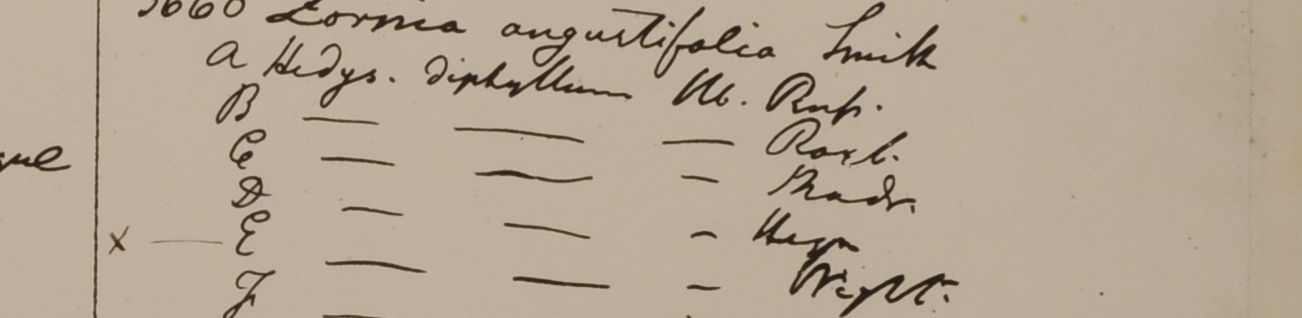 5660 Zornia angustifolia Smith
A Hedys. diphyllum Hb. Russ.
B — — — Roxb.
C — — — Madr.
D — — — Heyn
x — E — — — Wight.
F